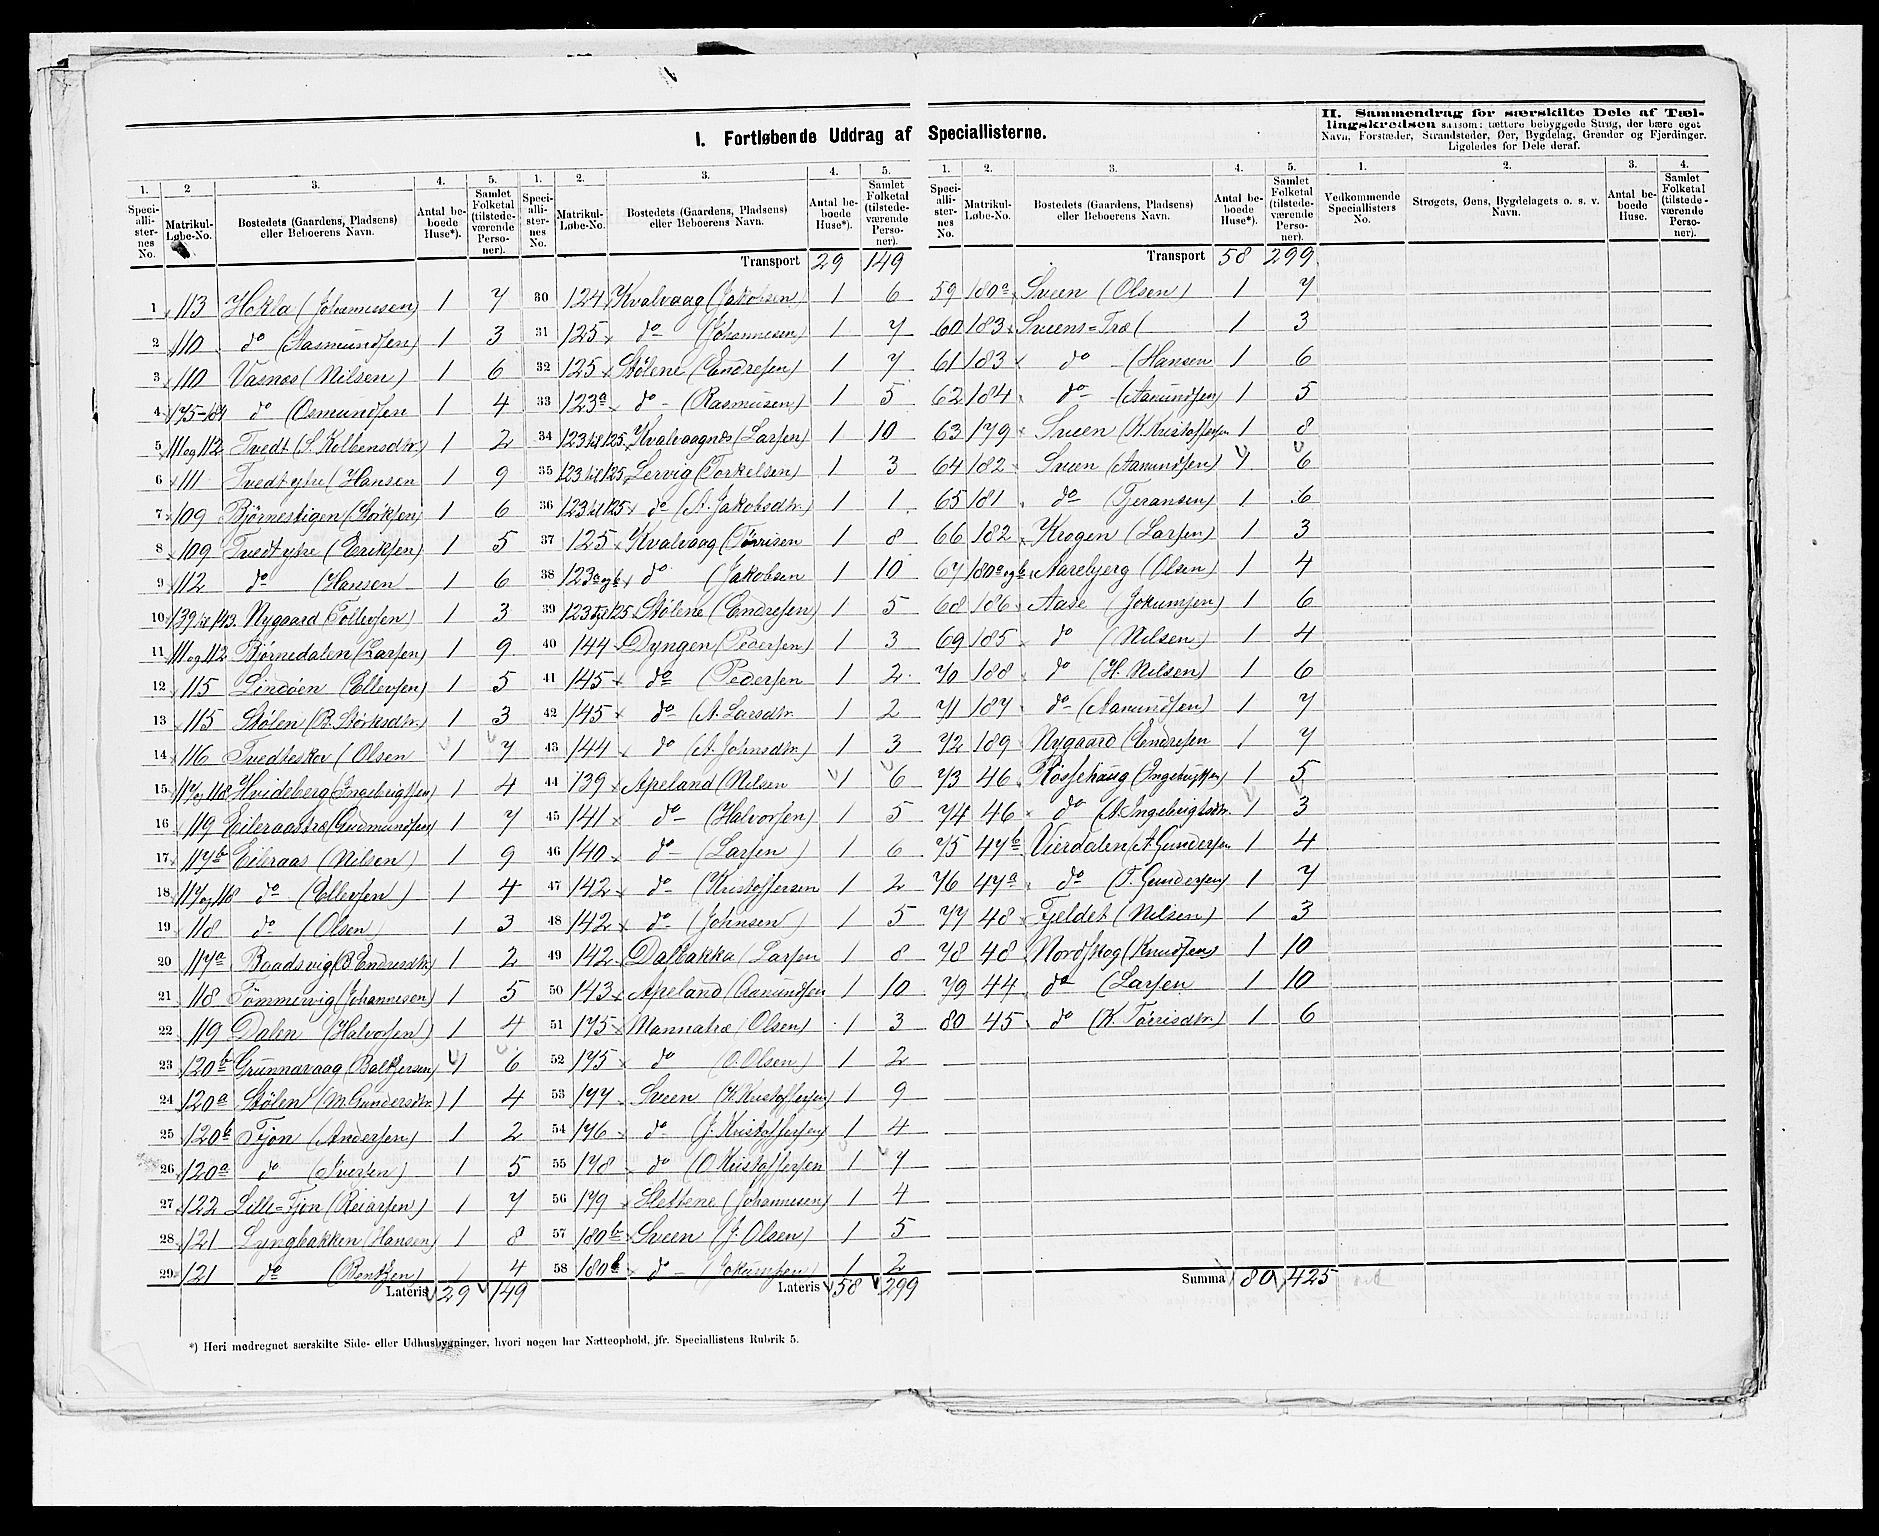 I. Fortløbende Uddrag af Speciallisterne.
II. Sammendrag for særskilte Dele af Tæl-
lingskredsen saasom: tættere bebyggede Strøg, der bære eget
Navn, Forstæder, Strandsteder, Øer, Bygdelag, Grender og Fjerdinger.
Ligeledes for Dele deraf.
1. 2 3. 4. 5.
Speci-alli-ster-nes No. Matrikul-Løbe-No. Bostedets (Gaardens, Pladsens) eller Beboerens Navn. Antal be-boede Huse*). Samlet Folketal (tilstede-værende Perso-ner).
1 113 Hokla (Johannessen) 1 7
2 110 do (Aasmundsen) 1 3
3 110 Vasnes (Nilsen) 1 6
4 175-184 do (Osmundsen 1 4
5 111 og 112 Tvedt (S. Kolbensdtr.) 1 2
6 111 Tvedt ytre (Hansen 1 9
7 109 Bjørnestigen (Størksen) 1 6
8 109 Tvedt ytre (Eriksen) 1 5
9 112 do (Hansen 1 6
10 139 til 143. Nygaard (Tollevsen) 1 3
11 111 og 112 Børnedalen (Larsen) 1 9
12 115 Lindøen (Ellevsen) 1 5
13 115 Stølen (B. Størksdtr.) 1 3
14 116 Tvedteskov (Olsen 1 7
15 117 og 118 Hvideberg (Ingebrigtsen) 1 4
16 119 Eileraastræ (Gudmundsen) 1 7
17 117b Eileraas (Nilsen) 1 9
18 117 og 118 do (Ellevsen) 1 4
19 118 do (Olsen) 1 3
20 117a Baadsvig (B. Endresdtr.) 1 2
21 118 Tömmervig (Johannesen) 1 5
22 119 Dalen (Halvorsen) 1 4
23 120b Grunnavaag (Baltzersen) 1 6
24 120a Stølen (M. Gundersdtr. 1 4
25 120b Tjøn (Andersen) 1 2
26 120a do (Iversen) 1 5
27 122 Lille-Tjøn (Reiarsen) 1 7
28 121 Lyngbakken (Hansen) 1 8
29 121 do (Bentzen) 1 4
Lateris 29 149
1. 2. 3. 4. 5.
Speci-alli-ster-nes No. Matrikul-Løbe-No. Bostedets (Gaardens, Pladsens) eller Beboerens Navn. Antal be-boede Huse*). Samlet Folketal (tilstede-værende Perso-ner).
Transport 29 149
30 124 Kvalvaag (Jakobsen) 1 6
31 125 do (Johannesen) 1 7
32 125 Stølene (Endresen) 1 7
33 123a do (Rasmusen) 1 5
34 123 til 125 Kvalvaagnes (Larsen) 1 10
35 123 til 125 Lervig (Torkelsen) 1 3
36 123 til 125 do (A. Jakobsdtr.) 1 1
37 125 Kvalvaag (Törrisen 1 8
38 123a og b do (Jakobsen 1 10
39 123 til 125 Stølene (Endresen) 1 5
40 144 Dyngen (Pedersen) 1 3
41 145 do (Pedersen 1 2
42 145 do (A. Larsdtr. 1 2
43 144 do (A. Johnsdtr.) 1 3
44 139 Apeland (Nilsen 1 6
45 141 do (Halvorsen) 1 5
46 140 do (Larsen) 1 6
47 142 do (Kristoffersen 1 2
48 142 do (Johnsen) 1 5
49 142 Dalbakka (Larsen 1 8
50 143 Apeland (Aanundsen 1 10
51 175 Mannatræ (Olsen) 1 3
52 175 do (O. Olsen) 1 2
53 177 Sveen (H. Kristoffersen) 1 9
54 176 do (J. Kristoffersen) 1 4
55 178 do (O Kristoffersen 1 7
56 179 Slettene (Johannesen) 1 4
57 180b Sveen (J. Olsen) 1 5
58 180b do (Jokumsen) 1 2
Lateris 58 299
1. 2. 3. 4. 5.
Speci-alli-ster-nes No. Matrikul-Løbe-No. Bostedets (Gaardens, Pladsens) eller Beboerens Navn. Antal be-boede Huse*). Samlet Folketal (tilstede-værende Perso-ner).
Transport 58 299
59 180a Sveen (Olsen) 1 7
60 183 Sveens-Træ ( 1 3
61 183 do (Hansen 1 6
62 184 do (Aanundsen) 1 5
63 179 Sveen (K. Kristoffersen 1 8
64 182 Sveen (Aanundsen) 1 6
65 181 do (Gjeransen) 1 6
66 182 Krogen (Larsen) 1 3
67 180a og b Aarebjerg (Olsen) 1 4
68 186 Aase (Jokumsen) 1 6
69 185 do (Nilsen) 1 4
70 188 do (H. Nilsen) 1 6
71 187 do (Aanundsen) 1 7
72 189 Nygaard (Endresen 1 7
73 46 Røssehaug (Ingebrigtsen) 1 5
74 46 do (A. Ingebrigtsdtr. 1 3
75 47b Vierdalen (A Gundersen 1 4
76 47a do (T. Gundersen) 1 7
77 48 Fjeldet (Nilsen) 1 3
78 48 Nordskog (Knudsen) 1 10
79 44 do (Larsen 1 10
80 45 do (K. Törrisdtr.) 1 6
Summa 80 425
1. 2. 3. 4.
Vedkommende Speciallisters No. Strøgets, Øens, Bygdelagets o. s. v. Navn. Antal be-boede Huse. Samlet Folketal (tilstede-værende Perso-ner).
*) Heri medregnet særskilte Side- eller Udhusbygninger, hvori nogen har Natteophold, jfr. Speciallistens Rubrik 5.